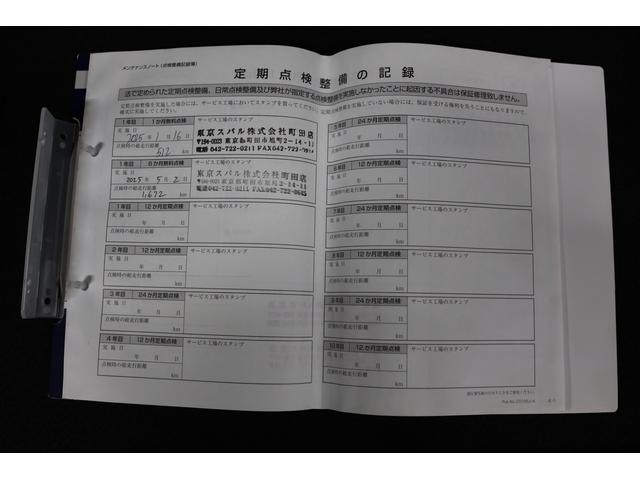 メンテナンスノート(点検整備記録簿)
定期点検整備の記録
法で定められた定期点検整備、日常点検整備及び弊社が指定する点検整備を実施しなかったことに起因する不具合は保証修理致しません。
定期点検整備を実施した場合には、サービス工場においてスタンプを買ってください。
確実に実施してください。
1年目 1か月無料点検
実施日 2025年1月16日
点検時の総走行距離
512 km
サービス工場のスタンプ
東京スバル株式会社町田店
〒194-0023 東京都町田市旭町2-14-11
電話 042-722-0211
1年目 6か月無料点検
実施日
2025年5月2日
点検時の総走行距離
1,672 km
東京スバル株式会社町田店
〒194-0023 東京都町田市旭町2-14-11
電話 042-722-0211 FAX 042-722-0645
1年目 12か月定期点検
実施日
年 月 日
点検時の総走行距離
km
サービス工場のスタンプ
2年目 12か月定期点検
実施日
年 月 日
点検時の総走行距離
km
サービス工場のスタンプ
3年目 24か月定期点検
実施日
年 月 日
点検時の総走行距離
km
サービス工場のスタンプ
4年目 12か月定期点検
実施日
年 月 日
点検時の総走行距離
km
サービス工場のスタンプ
5年目 24か月定期点検
実施日
年 月 日
点検時の総走行距離
km
サービス工場のスタンプ
6年目 12か月定期点検
実施日
年 月 日
点検時の総走行距離
km
サービス工場のスタンプ
7年目 24か月定期点検
実施日
年 月 日
点検時の総走行距離
km
サービス工場のスタンプ
8年目 12か月定期点検
実施日
年 月 日
点検時の総走行距離
km
サービス工場のスタンプ
9年目 24か月定期点検
実施日
年 月 日
点検時の総走行距離
km
サービス工場のスタンプ
10年目 12か月定期点検
実施日
年 月 日
点検時の総走行距離
km
サービス工場のスタンプ